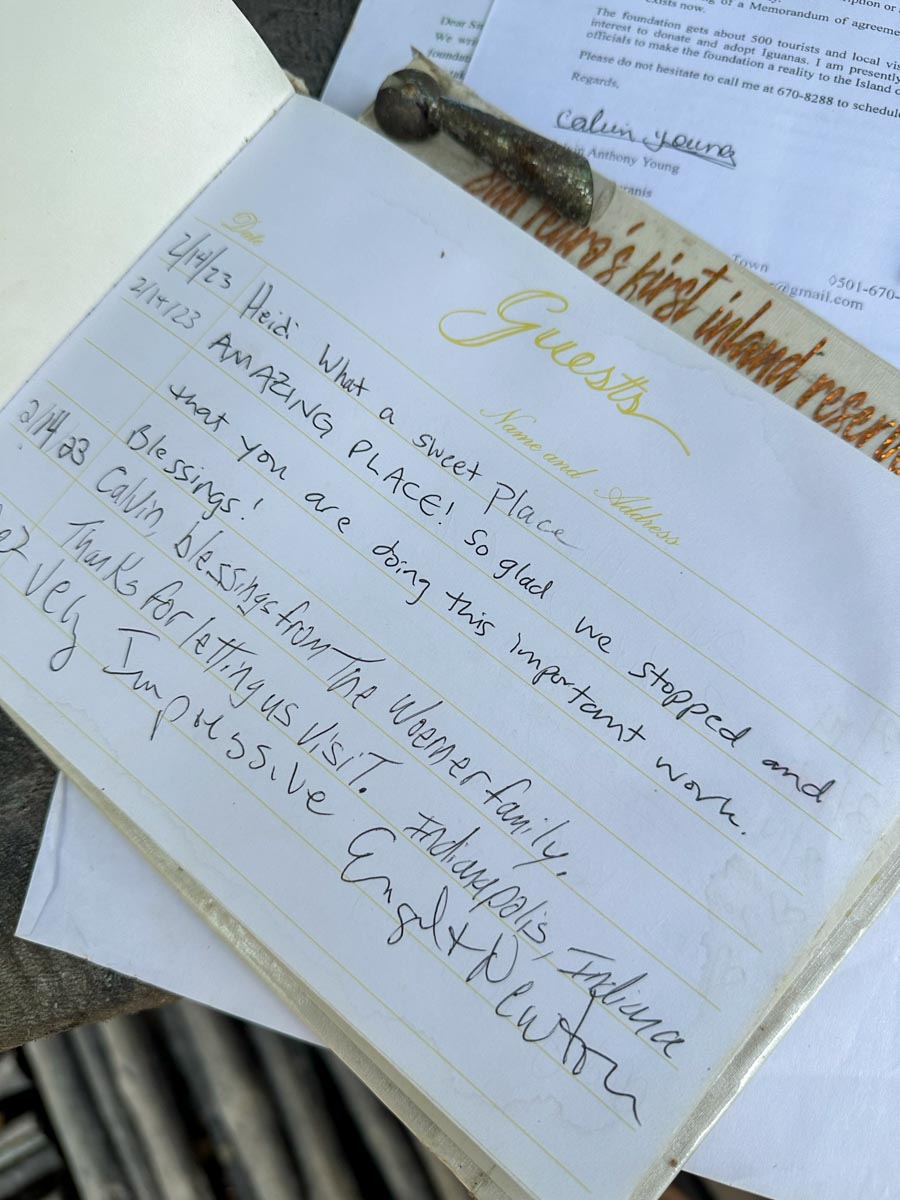 of a Memorandum of agreeme
exists now.
The foundation gets about 500 tourists and local vis
interest to donate and adopt Iguanas. I am presently
officials to make the foundation a reality to the Island o
Please do not hesitate to call me at 670-8288 to schedule
Regards,
Calvin Young
Anthony Young
Town
0501-670-
@gmail.com
Dear
We wri
first inland reserve
Guests
Date
Name and Address
2/14/23 Heidi What a sweet Place
2/14/23 AMAZING PLACE! So glad we stopped and
that you are doing this important work.
Blessings!
2/14/23 Calvin, blessings from The Woerner family.
Thanks for letting us visit. Indianapolis, Indiana
Very Impressive Newton